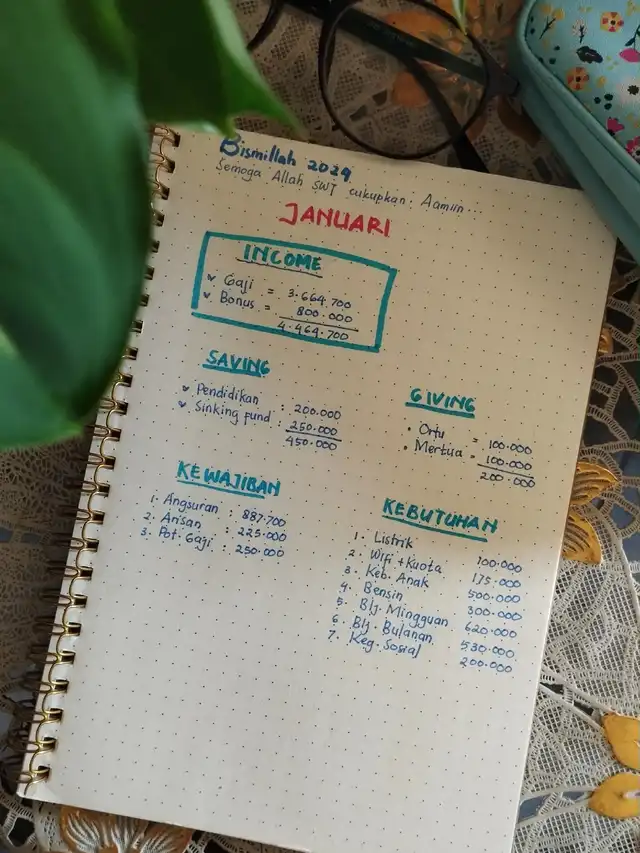 Bismillah 2024
Semoga Allah SWT cukupkan. Aamiin...
JANUARI
INCOME
Gaji = 3.664.700
Bonus = 800.000
4.464.700
SAVING
Pendidikan : 200.000
Sinking fund : 250.000
450.000
GIVING
• Ortu = 100.000
• Mertua = 100.000
200.000
KEWAJIBAN
1. Angsuran : 887.700
2. Arisan : 225.000
3. Pot. Gaji : 250.000
KEBUTUHAN
1. Listrik 100.000
2. Wifi + Kuota 175.000
3. Keb. Anak 500.000
4. Bensin 300.000
5. Blj. Mingguan 620.000
6. Blj. Bulanan 530.000
7. Keg. Sosial 200.000